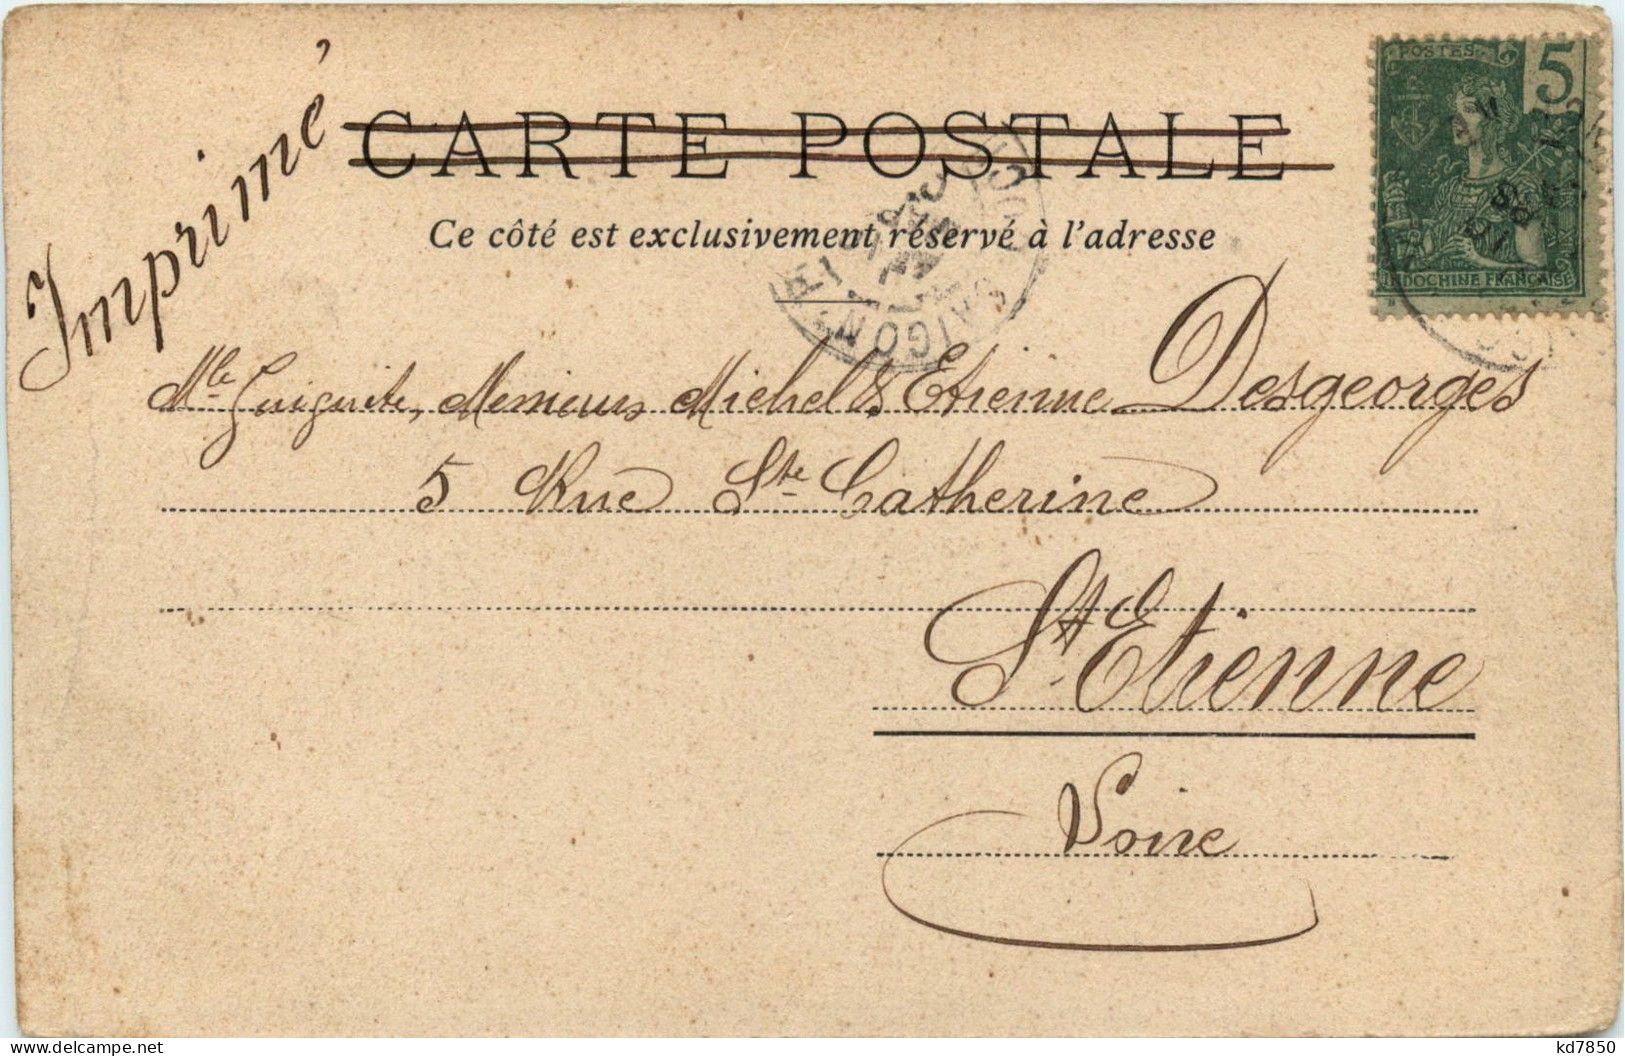 Imprimé
CARTE POSTALE
Ce côté est exclusivement réservé à l'adresse
POSTES
5
INDOCHINE FRANÇAISE
SAIGON
Mlle Guiguite, Messieurs Michel & Etienne Desgeorges
5 Rue Ste Catherine
St Etienne
Loire
kd7850